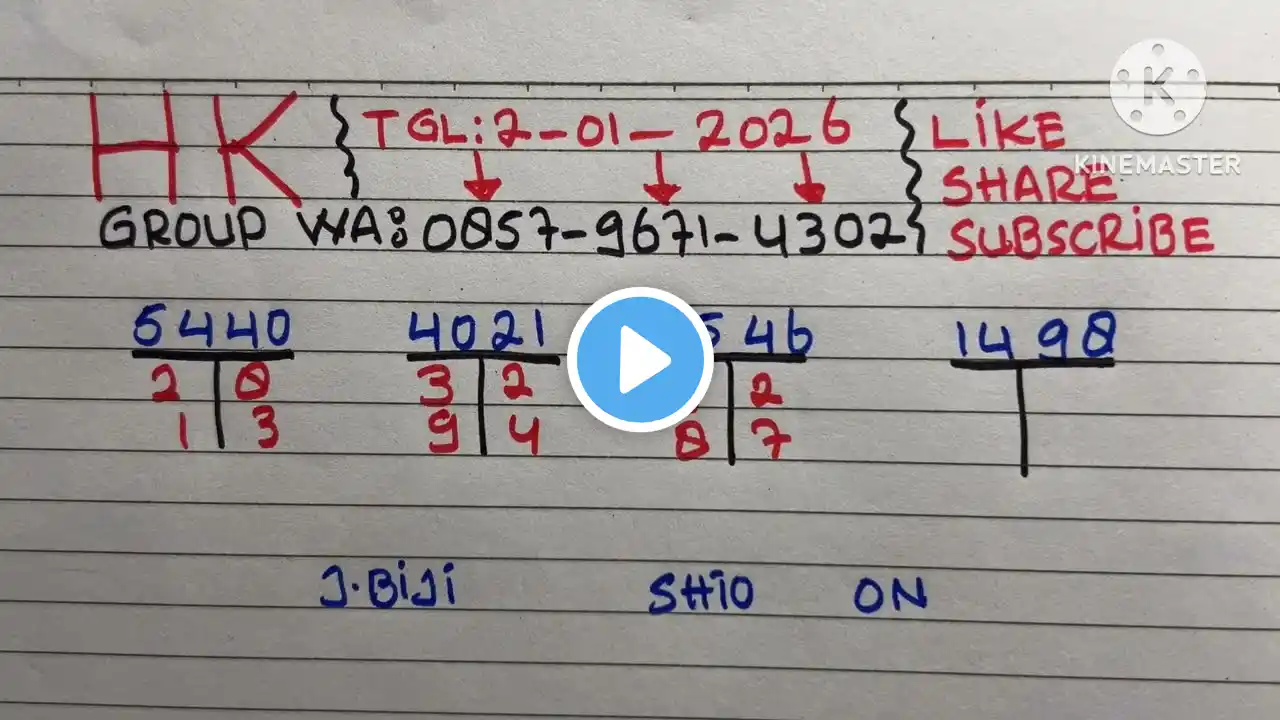 HK } TGL:2-01-2026 } LIKE
SHARE
GROUP WA: 0857-9671-4302 } SUBSCRIBE
KINEMASTER
5440 4021 546 1498
2 8 3 2 2
1 3 9 4 8 7
J.BiJi SHIO ON